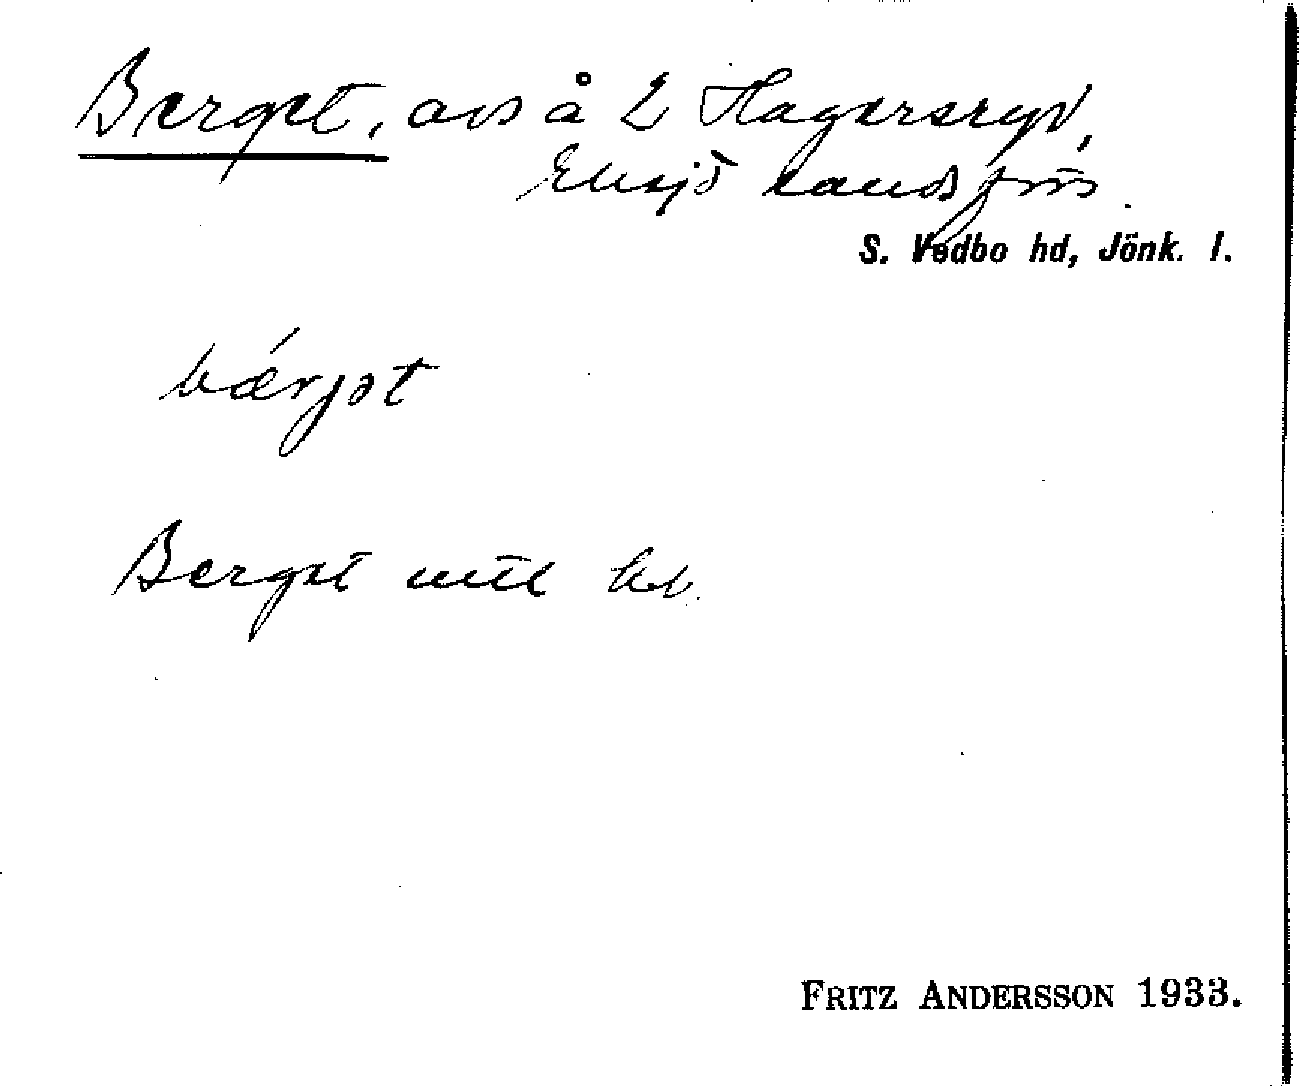 Berget, avs å L Hagersryd,
Eksjö landsförs.
S. Vedbo hd, Jönk. l.
bǽrjət
Berget intill
FRITZ ANDERSSON 1933.